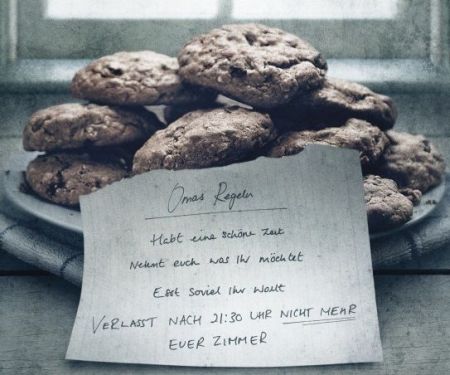 Omas Regeln
Habt eine schöne Zeit
Nehmt euch was Ihr möchtet
Esst soviel Ihr wollt
VERLASST NACH 21:30 UHR NICHT MEHR
EUER ZIMMER